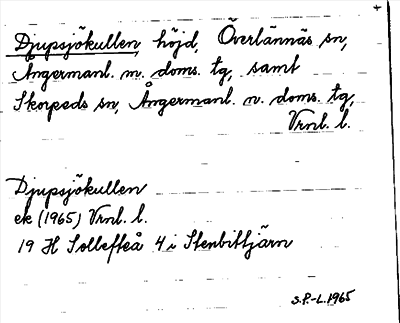 Djupsjökullen, höjd, Överlännäs sn,
Ångermanl. m. doms. tg, samt
Skorpeds sn, Ångermanl. n. doms. tg,
Vrnl. l.
Djupsjökullen
ek (1965) Vrnl. l.
19 H Sollefteå 4 i Stenbittjärn
S.P.-L. 1965